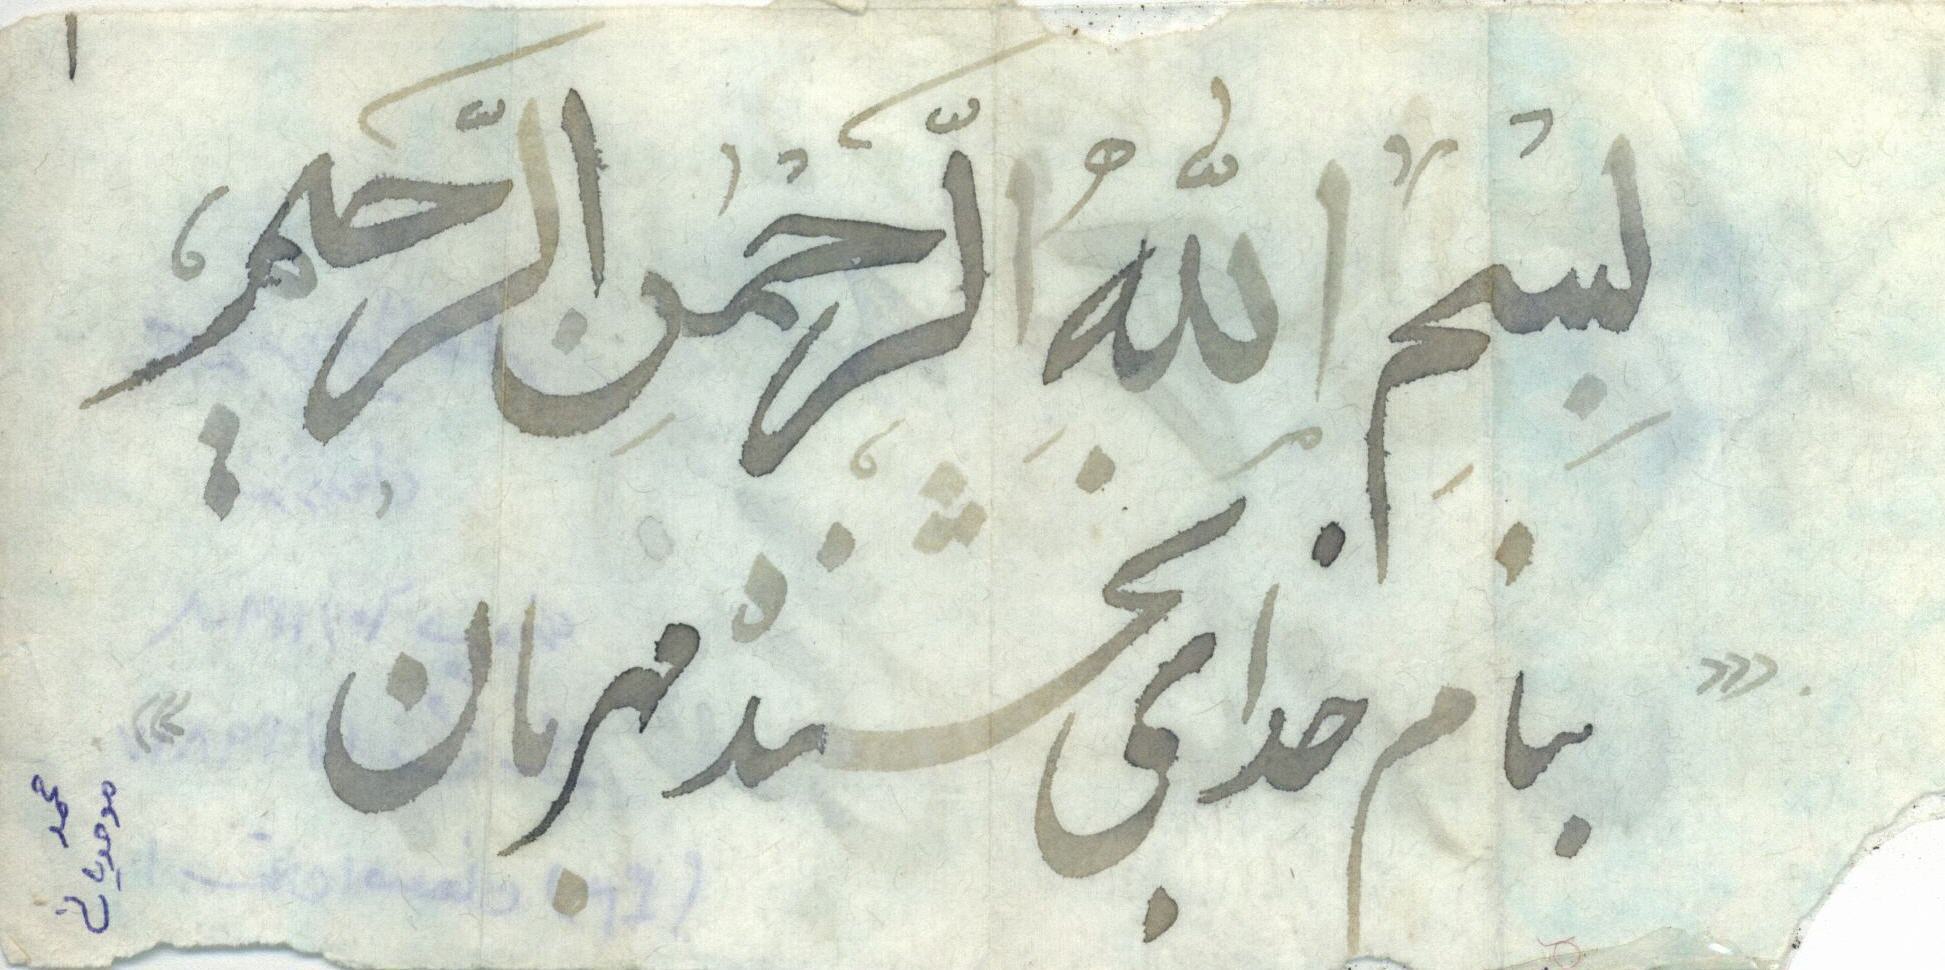 بِسْمِ اللّٰهِ الرَّحْمٰنِ الرَّحیمِ
بنام خدای بخشنده مهربان
محمد